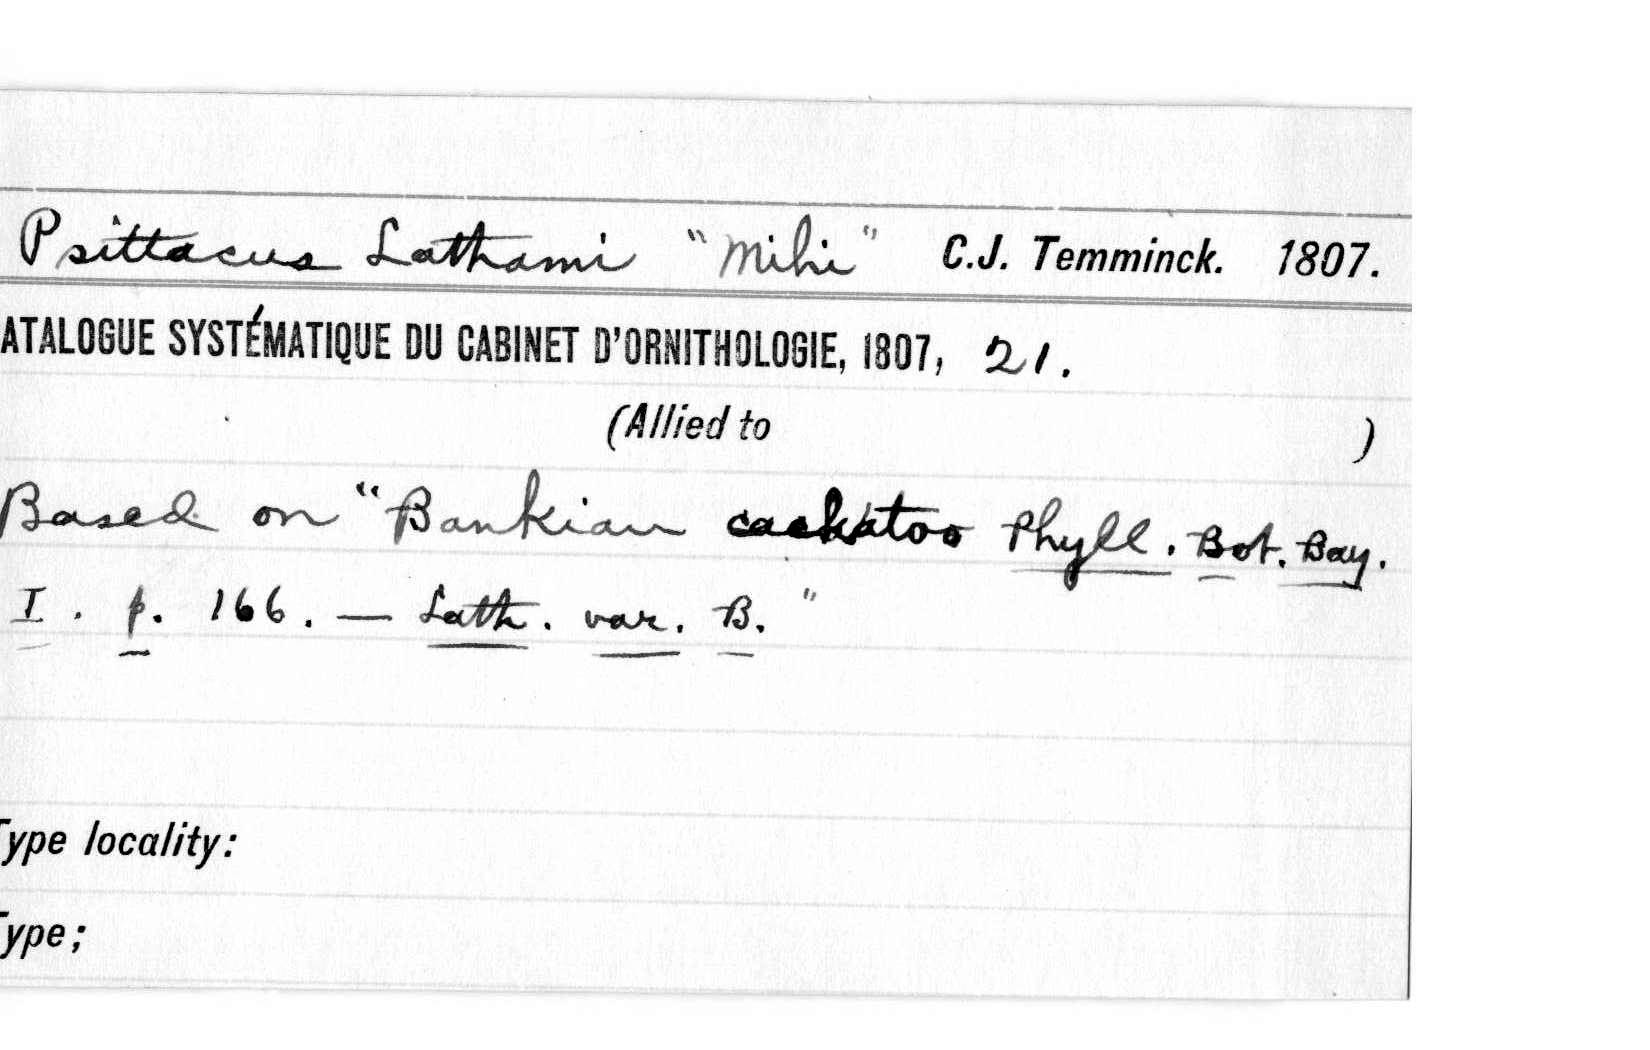 Psittacus Lathami "Mihi" C.J. Temminck. 1807.
ATALOGUE SYSTÉMATIQUE DU CABINET D'ORNITHOLOGIE, 1807, 21.
(Allied to )
Based on "Bankian cackatoo Phyll. Bot. Bay.
I. p. 166. — Lath. var. B."
Type locality:
Type;